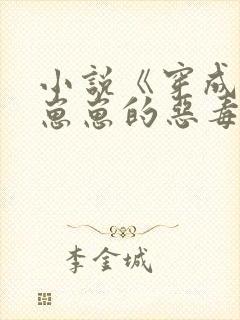 小说《穿成
崽崽的恶毒
李金城